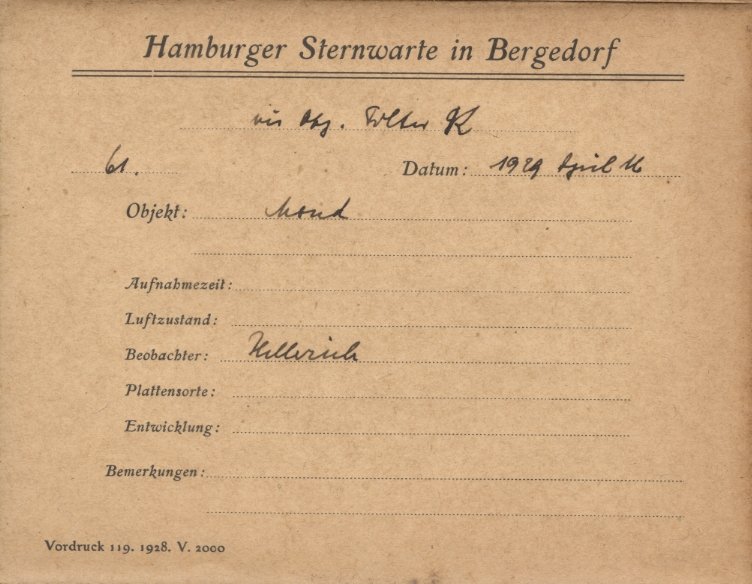 Hamburger Sternwarte in Bergedorf
vis Obj. Filter K
61. Datum: 1929 April 16
Objekt: Mond
Aufnahmezeit:
Luftzustand:
Beobachter: Hellerich
Plattensorte:
Entwicklung:
Bemerkungen:
Vordruck 119. 1928. V. 2000